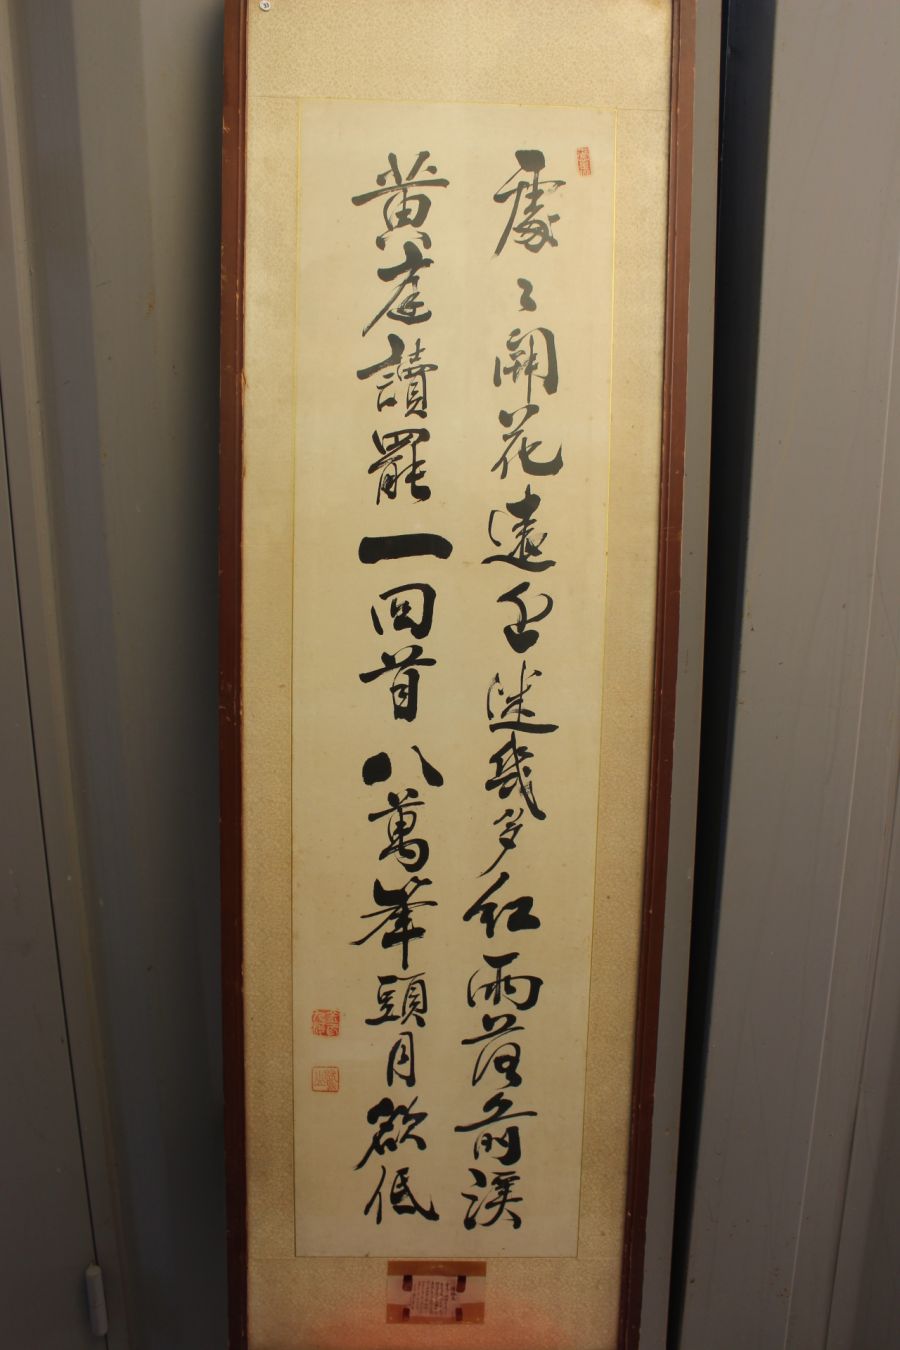 處〻開花遠近迷幾多紅雨落前溪
黃庭讀罷一回首八萬峯頭月欲低